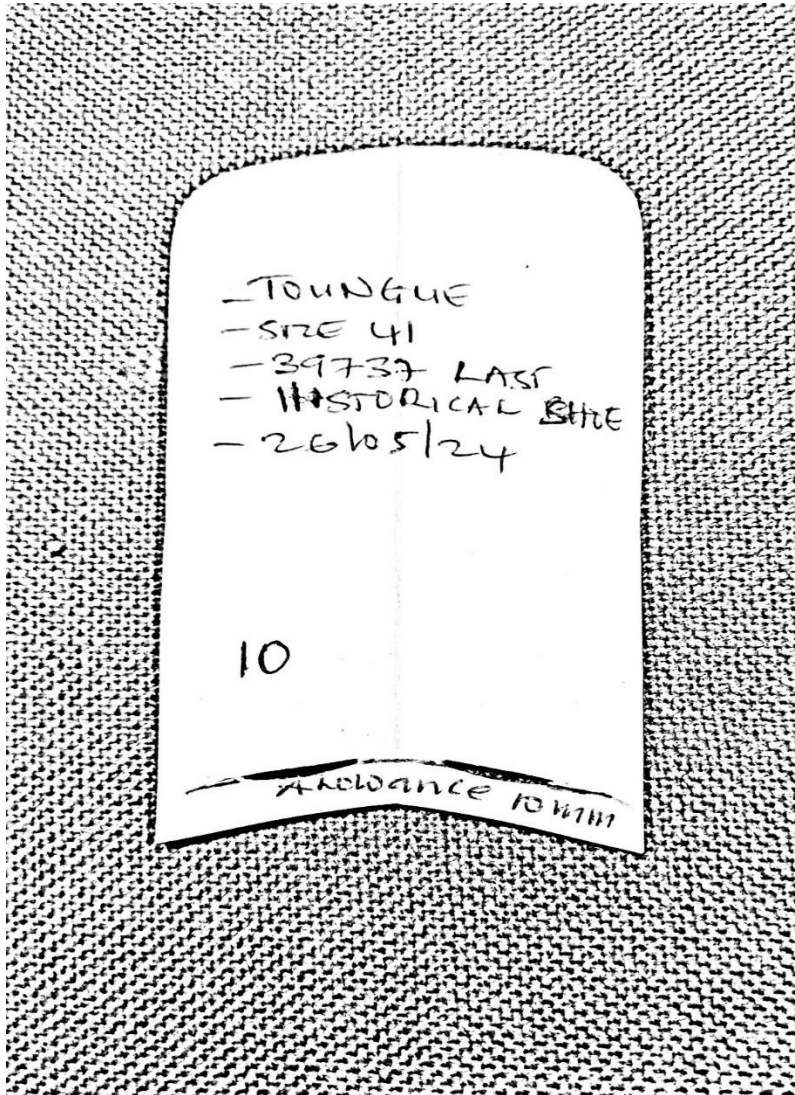 - TOUNGUE
- SIZE 41
- 39737 LAST
- HISTORICAL SHOE
- 26/05/24
10
Allowance 10mm